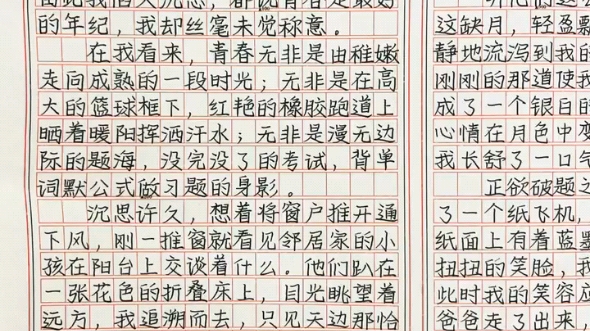 的年纪，我却丝毫未觉称意。
在我看来，青春无非是由稚嫩
走向成熟的一段时光；无非是在高
大的篮球框下，红艳的橡胶跑道上
晒着暖阳挥洒汗水；无非是漫无边
际的题海，没完没了的考试，背单
词默公式做习题的身影。
沉思许久，想着将窗户推开通
下风，刚一推窗就看见邻居家的小
孩在阳台上交谈着什么。他们趴在
一张花色的折叠床上，目光眺望着
远方，我追溯而去，只见天边那恰
这缺月，轻盈飘
静地流泻到我的
刚刚的那道使我
成了一个银白的
心情在月色中变
我长舒了一口气
正欲破题之
了一个纸飞机，
纸面上有着蓝墨
扭扭的笑脸，我
此时我的笑容应
爸爸走了出来，